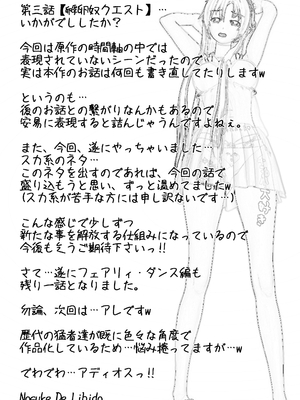 第三話【解印奴クエスト】…
いかがでししたか?
今回は原作の時間軸の中では
表現されていないシーンだったので
実は本作のお話は何回も書き直してたりしますw
というのも…
後のお話との繋がりなんかもあるので
安易に表現すると詰んじゃうんですよねぇ。
また、今回、遂にやっちゃいました…
スカ系のネタ…
このネタを出すのであれば、今回の話で
盛り込もうと思い、ずっと温めてましたw
(スカ系が苦手な方には申し訳ないです…)
こんな感じで少しずつ
新たな事を解放する仕組みになっているので
今後もどうご期待下さいっ!!
さて…遂にフェアリィ・ダンス編も
残り一話となりました。
勿論、次回は…アレですw
歴代の猛者達が既に色々な角度で
作品化しているため…悩み捲ってますが…w
でわでわ…アディオスっ!!
Nosuke De Libido